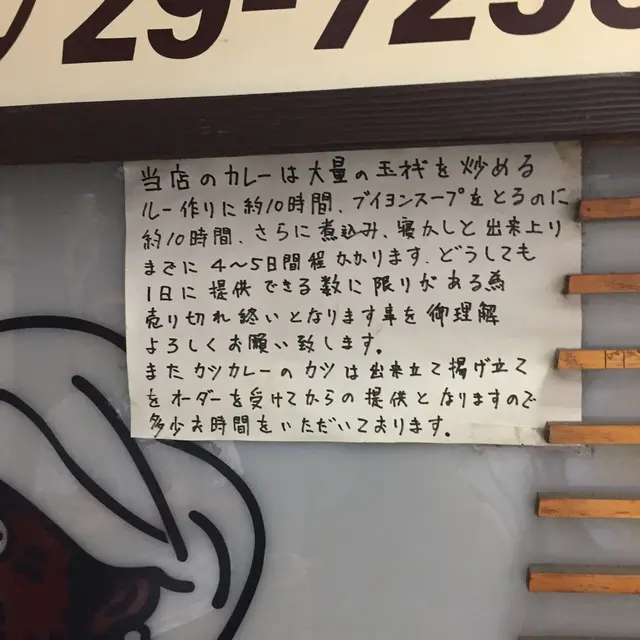 29-725
当店のカレーは大量の玉ネギを炒める
ルー作りに約10時間、ブイヨンスープをとるのに
約10時間、さらに煮込み、寝かしと出来上り
までに4〜5日間程かかります。どうしても
1日に提供できる数に限りがある為
売り切れ終いとなります事を御理解
よろしくお願い致します。
またカツカレーのカツは出来立て揚げ立て
をオーダーを受けてからの提供となりますので
多少お時間をいただいております。